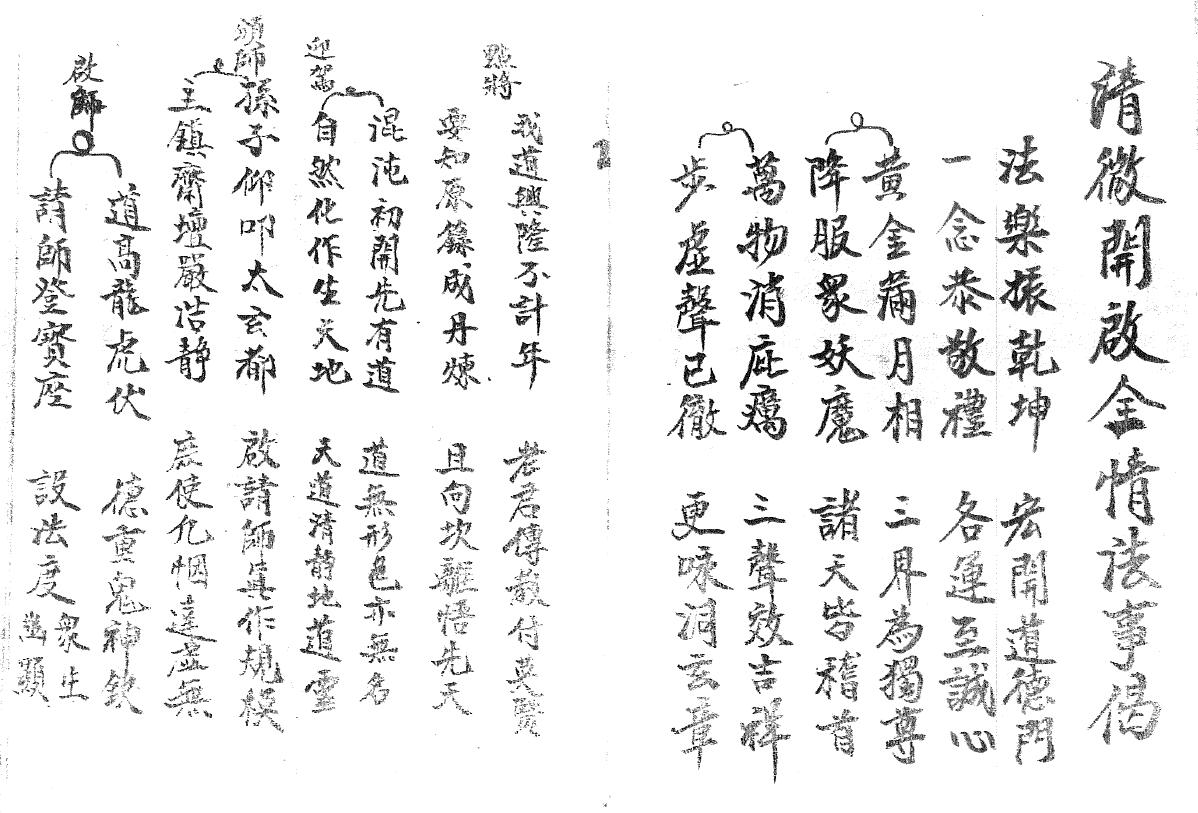 清微開啟全情法事偈
法樂振乾坤 宏開道德門
一念恭敬禮 各運至誠心
黄金滿月相 三界為獨尊
降服眾妖魔 諸天皆稽首
萬物消庇癘 三聲效吉祥
步虛聲已徹 更咏洞玄章
點將
我道興隆不計年 老君傳教付英賢
要知原籙成丹煉 且向坎離悟先天
迎駕
混沌初開先有道 道無形色亦無名
自然化作生天地 天道清静地道靈
頌師
孫子仰叩太玄都 啟請師真作規模
主鎮齋壇嚴浩静 庶使凡悃達虛無
啟師
道高龍虎伏 德重鬼神欽
請師登寶座 設法度眾生 幽顯